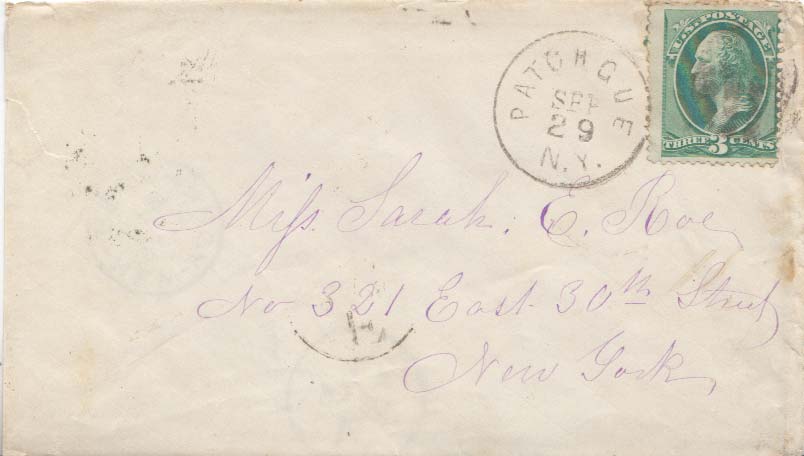 PATCHOGUE
SEP
29
N.Y.
U.S. POSTAGE
THREE 3 CENTS
Miss. Sarah. E. Roe
No 321 East 30th Street
New York